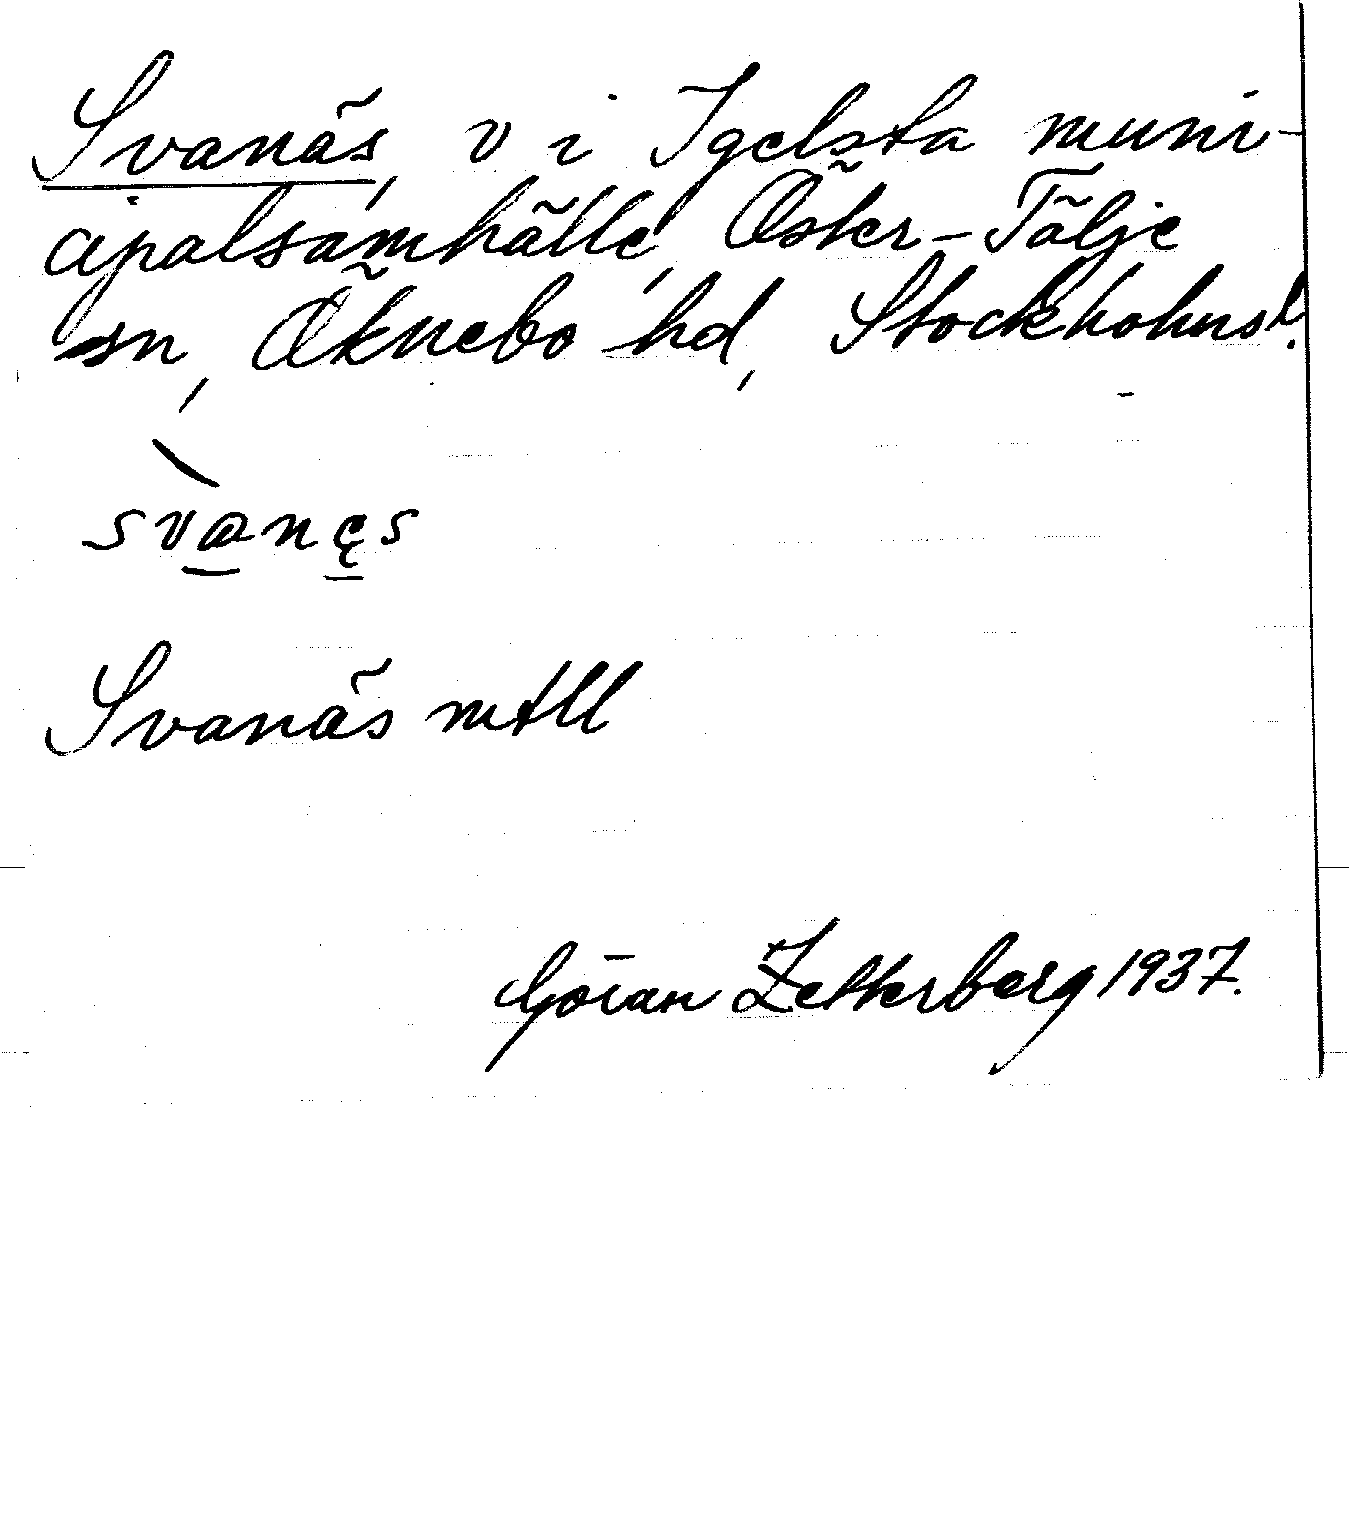 Svanäs, v i Igelsta muni-
cipalsamhälle, Öster-Tälje
sn, Öknebo hd, Stockholms l.
svanęs
Svanäs mtll
Göran Zetterberg 1937.